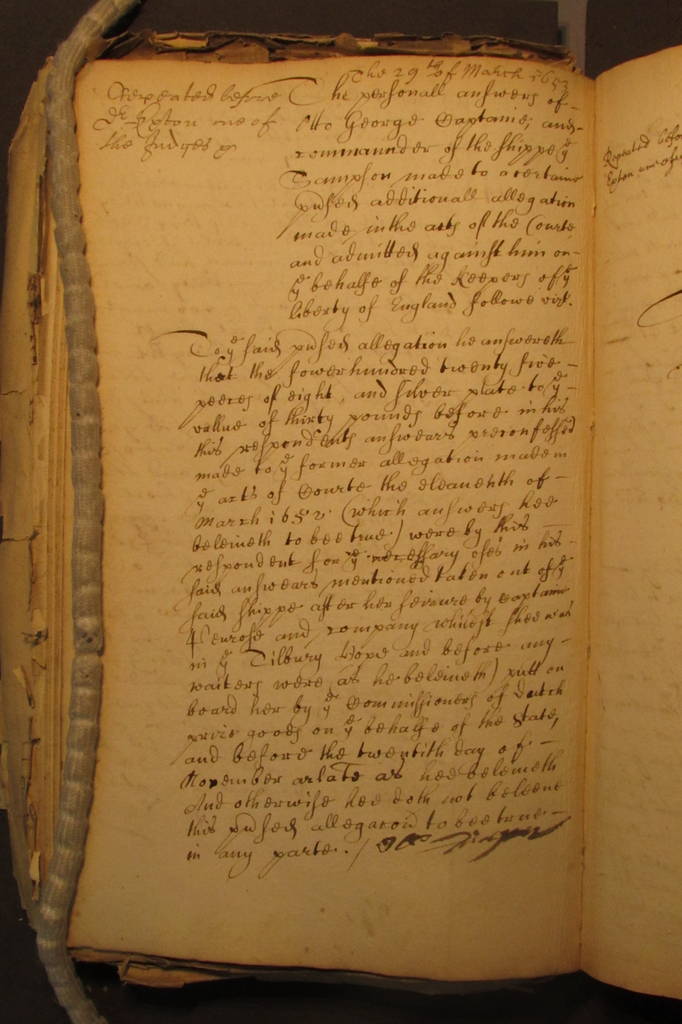 The 29th of March 1653
Repeated before
Dr. Exton one of
the Judges
The personall answers of
Otto George Captaine, and
commander of the shippe ye
Sampson made to a certaine
additionall allegation
made in the acts of the Courte
and admitted against him on
ye behalfe of the Keepers of ye
liberty of England followe vizt.
To ye said allegation he answereth
that the fower hundred twenty five
peeces of eight, and silver plate to ye
vallue of thirty pounds before in his
this respondents answears preconfessed
made to ye former allegation made in
ye acts of Courte the eleaventh of
March 1652 (which answers hee
beleiveth to bee true) were by this
respondent for ye necessary oses in his
said answears mentioned taken out of ye
said shippe after her seizure by Captaine
Penrose and company whilest shee was
in ye Tilbury Hope and before any
waiters were (as he beleiveth) putt on
board her by ye Commissioners of dutch
prize goods on ye behalfe of the State,
and before the twentith day of
November as hee beleiveth
And otherwise hee doth not beleeve
this allegacon to bee true
in any parte. /
Repeated before
Exton one of